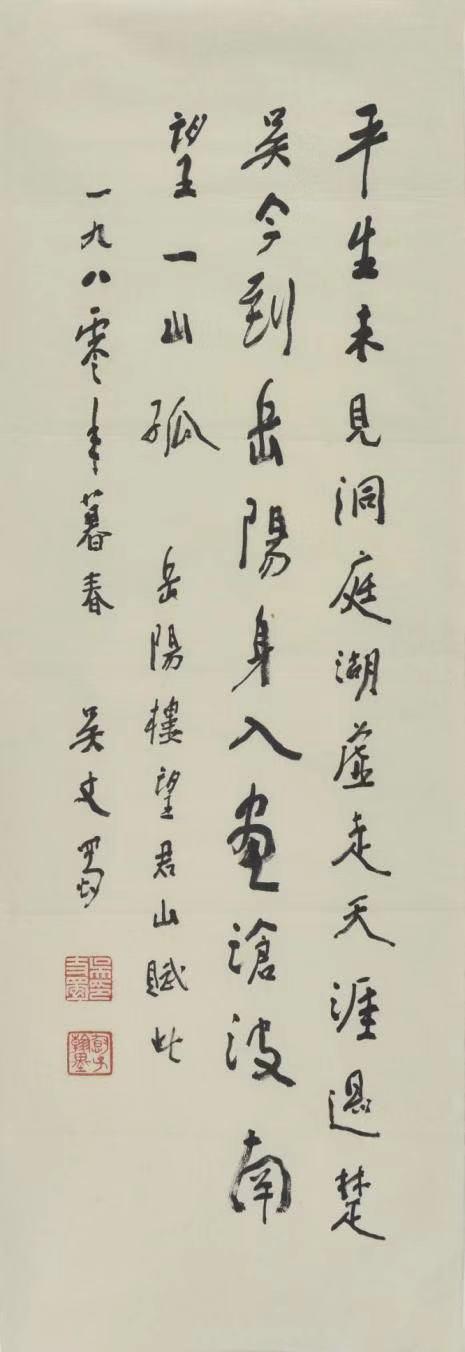 平生未見洞庭湖虛走天涯過楚
吴今到岳陽身入畫滄波南
望一山孤
岳陽樓望君山賦此
一九八零年暮春
吴丈蜀